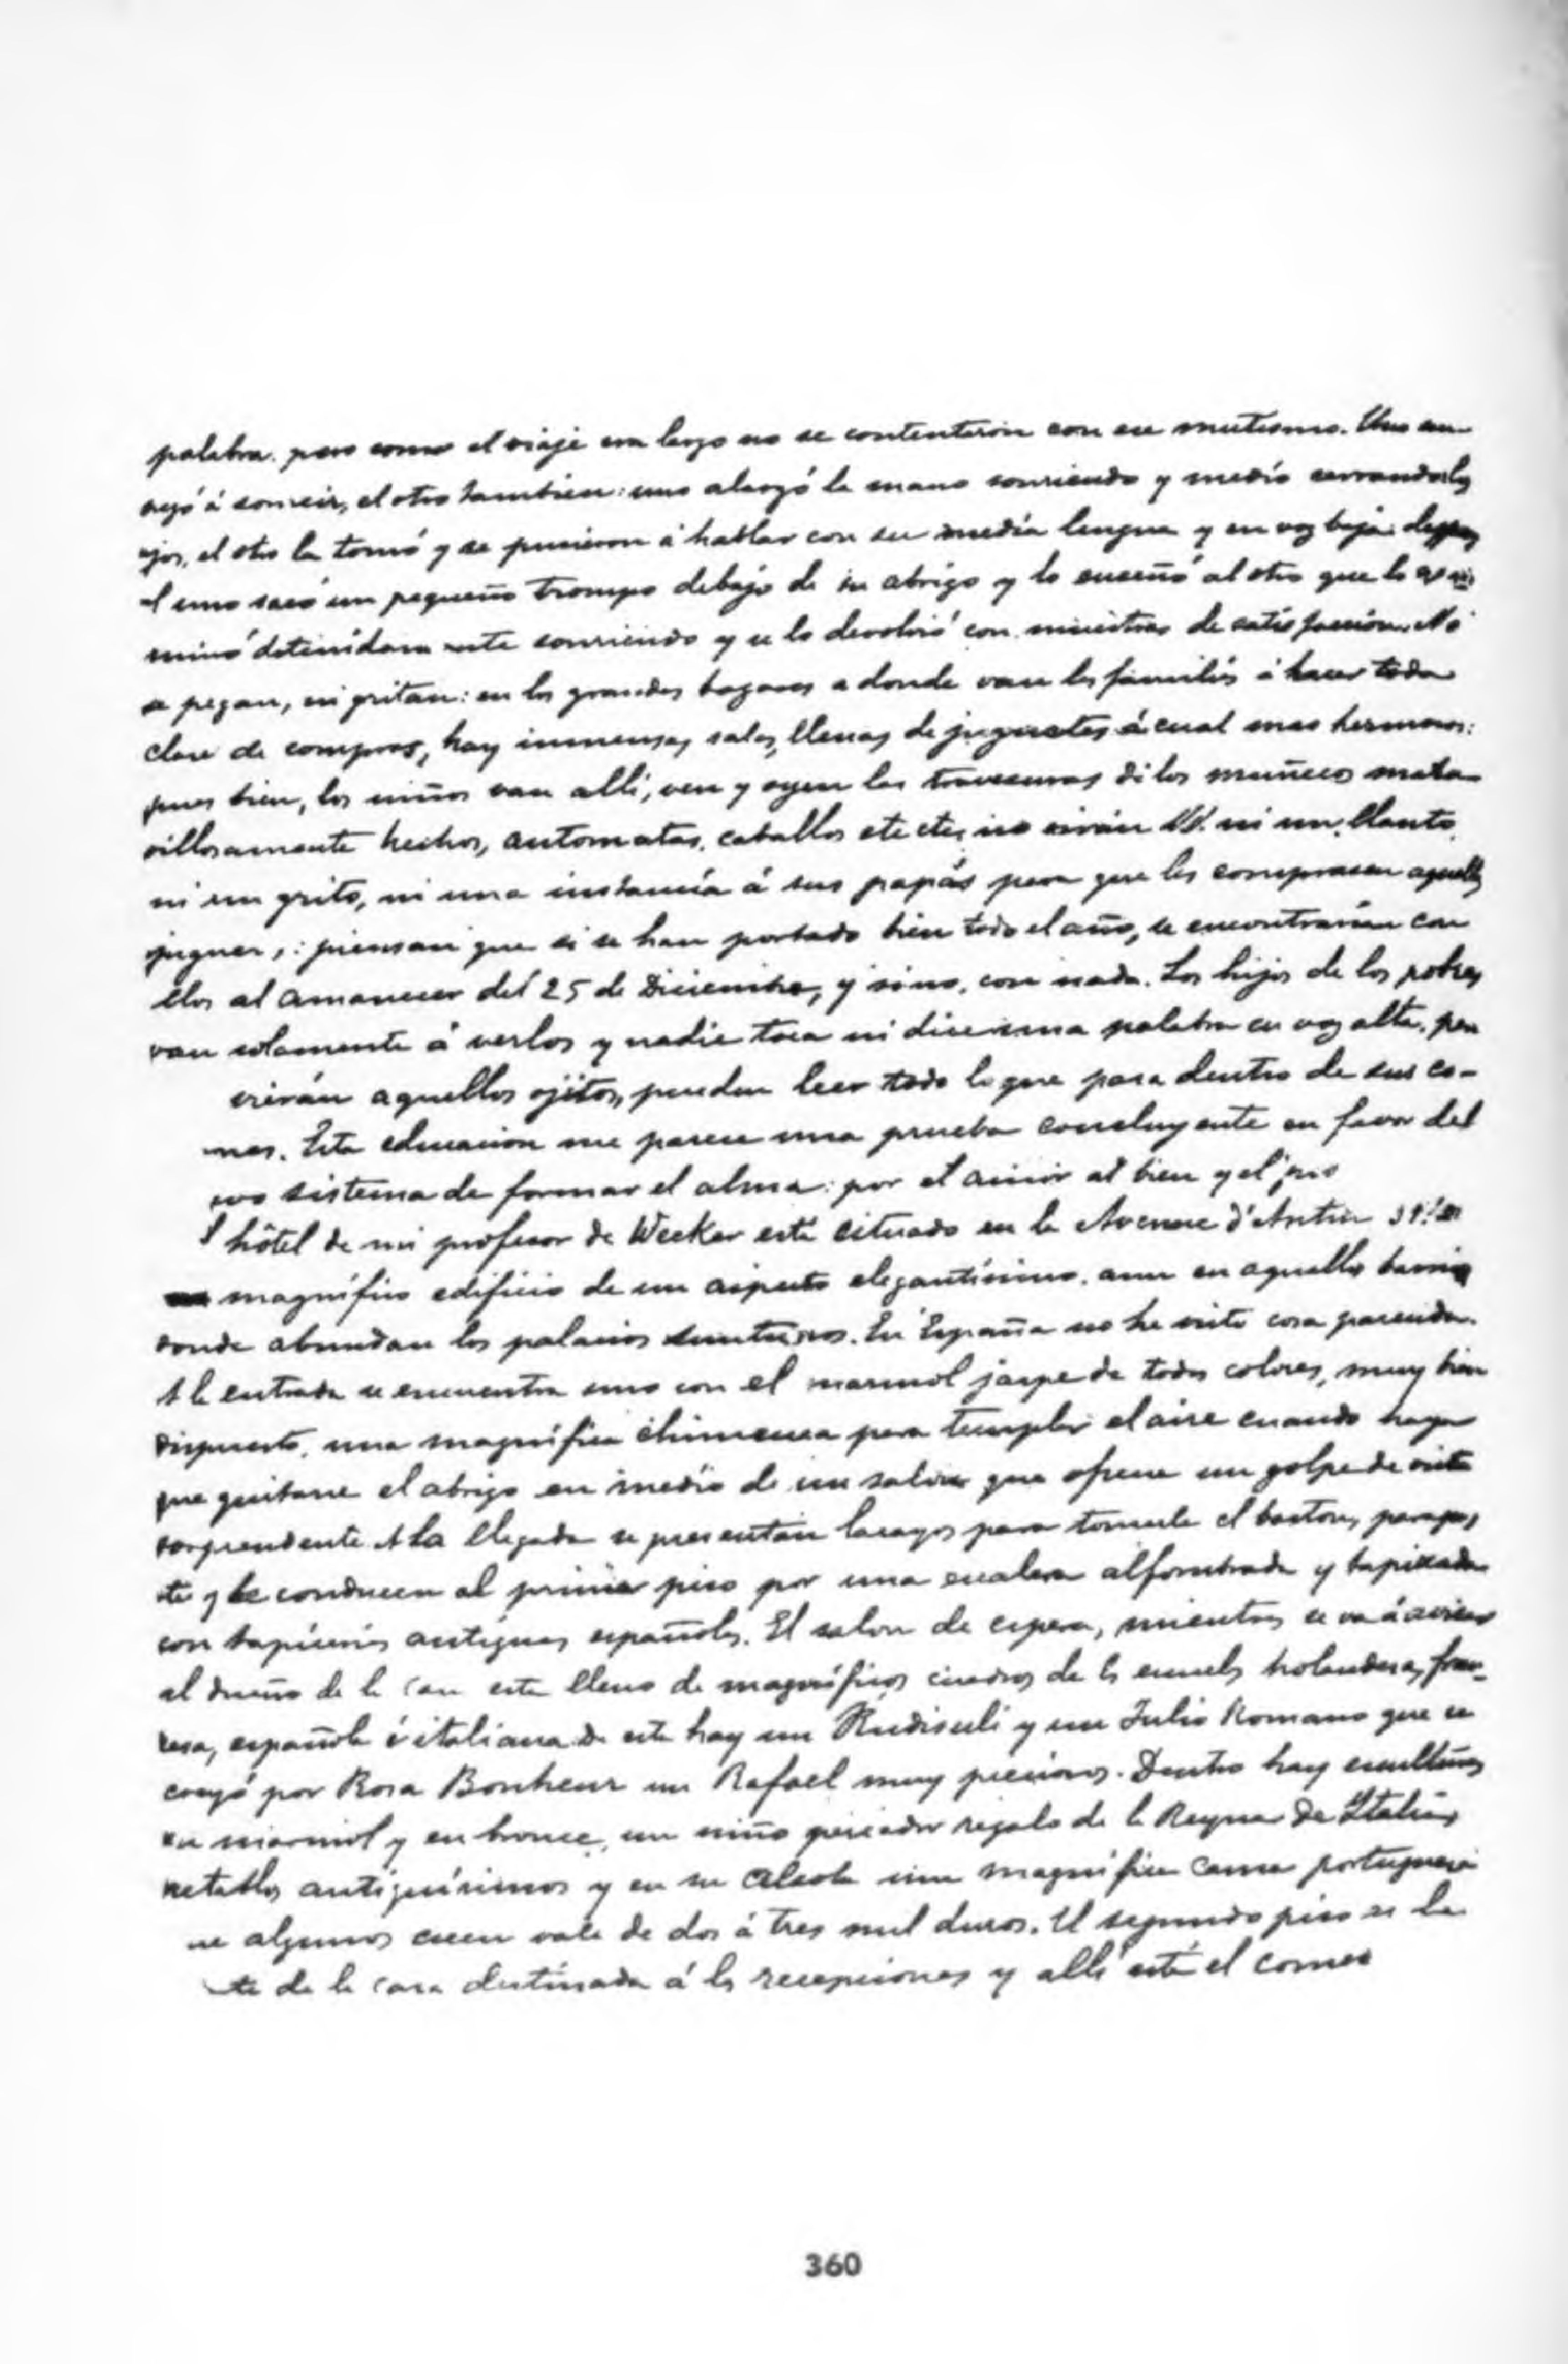 palabra. pero como el viaje era largo no se contentaron con ese mutismo. Uno em-
pezó á sonreir, el otro tambien: uno alargó la mano sonriendo y medio cerrando los
ojos, el otro la tomó y se pusieron á hablar con su media lengua y en voz baja: despues
el uno sacó un pequeño trompo debajo de su abrigo y lo enseñó al otro que lo exa
minó detenidamente sonriendo y se lo devolvió con muestras de satisfaccion. No
se pegan, ni gritan: en los grandes bazares a donde van las familias á hacer toda
clase de compras, hay inmensas salas, llenas de juguetes á cual mas hermosos:
pues bien, los niños van allí, ven y oyen las travesuras de los muñecos mara
villosamente hechos, automatas, caballos etc etc, no oirán VV. ni un llanto
ni un grito, ni una instancia á sus papás para que les comprasen aquellos
juguetes: piensan que si se han portado bien todo el año, se encontrarán con
ellos al amanecer del 25 de Diciembre, y sino, con nada. Los hijos de los pobres
van solamente á verlos y nadie toca ni dice una palabra en voz alta, pero
aquellos ojitos, pueden leer todo lo que pasa dentro de sus co-
nes. Esta educacion me parece una prueba concluyente en favor del
sistema de formar el alma: por el amor al bien y el
l hôtel de mi profesor de Wecker está situado en la Avenue d'Antin 31
magnífico edificio de un aspecto elegantísimo, aun en aquellos barrios
donde abundan los palacios suntuosos. En España no he visto cosa parecida.
A la entrada se encuentra uno con el marmol jaspe de todos colores, muy bien
dispuesto, una magnífica chimenea para templar el aire cuando haya
que quitarse el abrigo en medio de un salon que ofrece un golpe de vista
sorprendente. A la llegada se presentan lacayos para tomarle el baston, parapas
te y le conducen al primer piso por una escalera alfombrada y tapizada
con tapicerias antiguas españolas. El salon de espera, mientras se va á avisar
al dueño de la casa esta lleno de magníficos cuadros de las escuelas holandesa, fran-
cesa, española é italiana. De esta hay un y un Julio Romano que se
creyó por Rosa Bonheur un Rafael muy precioso. Dentro hay esculturas
en marmol y en bronce, un niño pescador regalo de la Reyna de Italia,
retablos antiquísimos y en su alcoba una magnífica cama portuguesa
ue algunos creen vale de dos á tres mil duros. El segundo piso es la
te de la casa destinada á las recepciones y allí está el comed
360